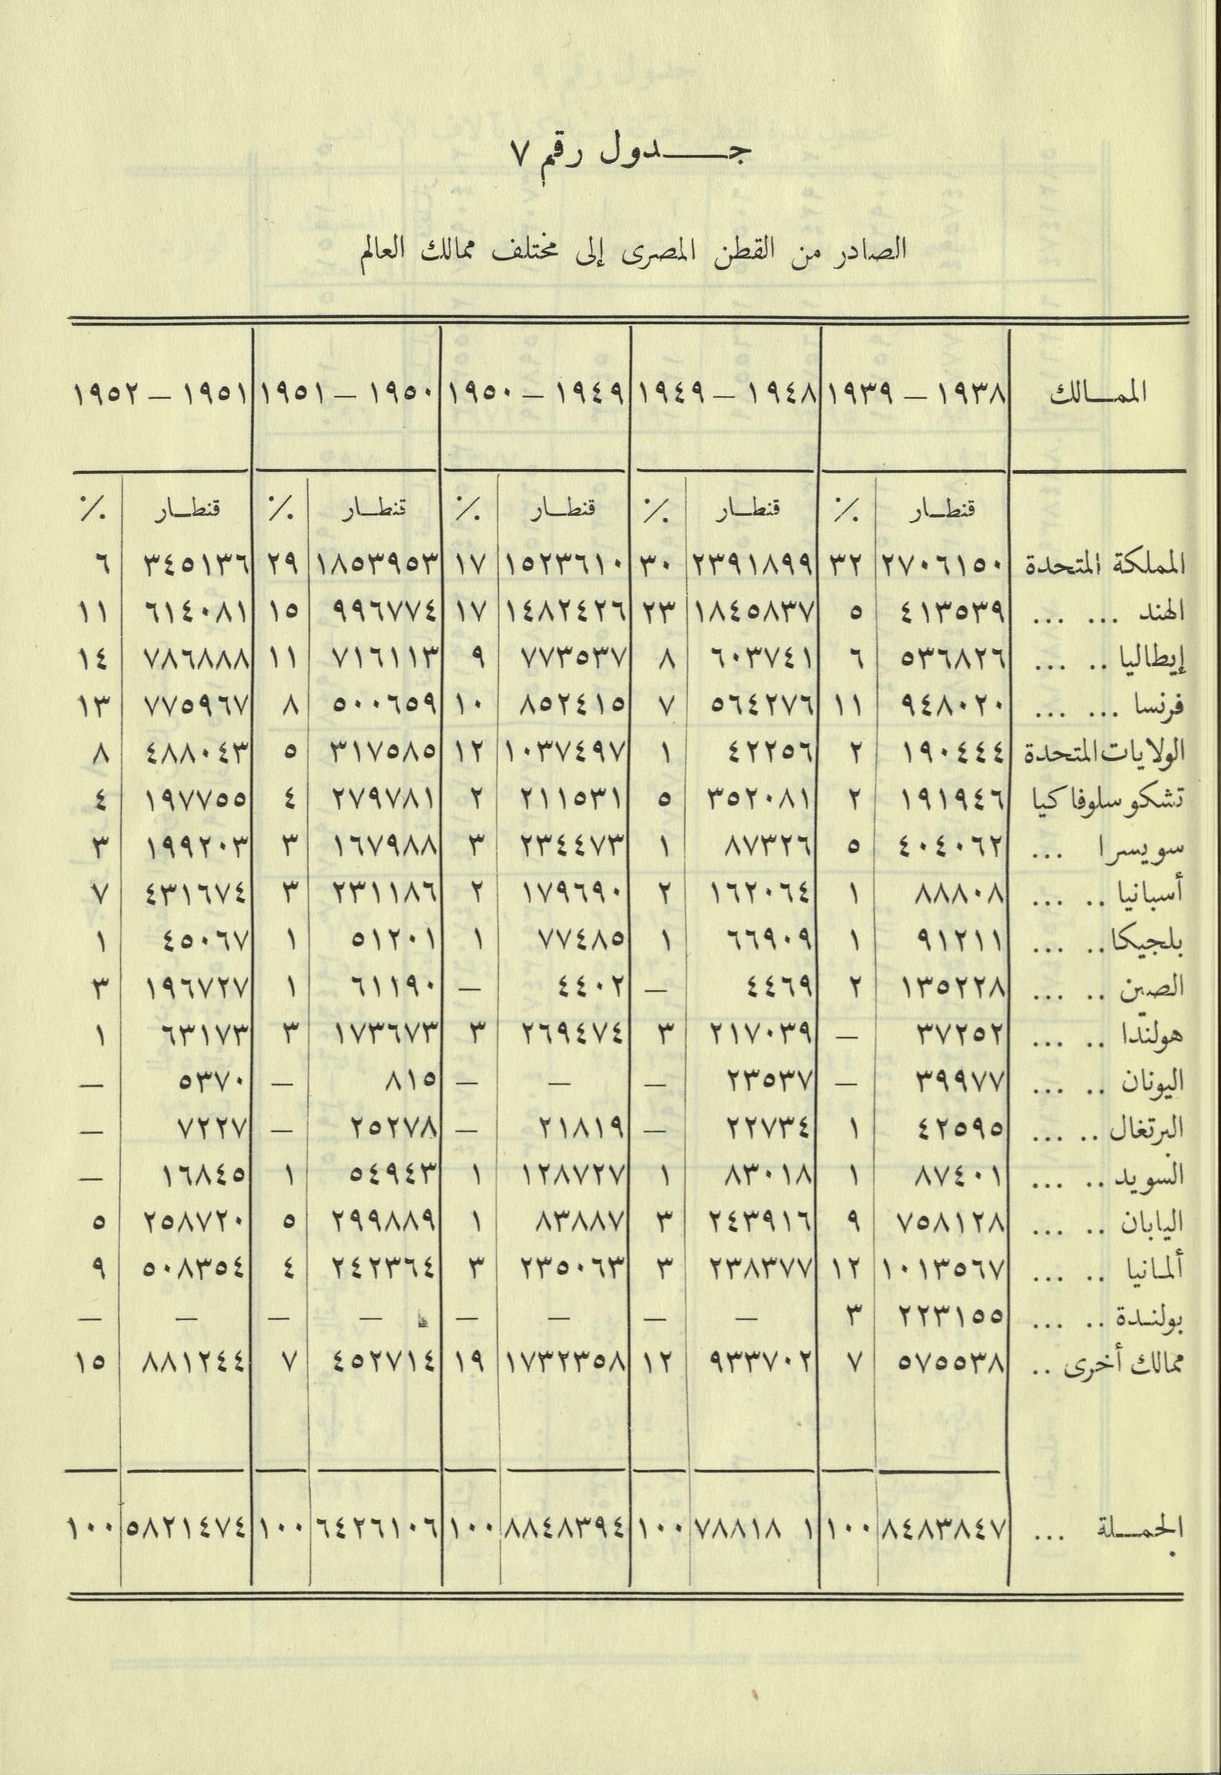 جـــدول رقم ٧
الصادر من القطن المصرى إلى مختلف ممالك العالم
الممـالك ١٩٣٨ — ١٩٣٩ ١٩٤٨ — ١٩٤٩ ١٩٤٩ — ١٩٥٠ ١٩٥٠ — ١٩٥١ ١٩٥١ — ١٩٥٢
قنطـار ٪ قنطـار ٪ قنطـار ٪ قنطـار ٪ قنطـار ٪
المملكة المتحدة ٢٧٠٦١٥٠ ٣٢ ٢٣٩١٨٩٩ ٣٠ ١٥٢٣٦١٠ ١٧ ١٨٥٣٩٥٣ ٢٩ ٣٤٥١٣٦ ٦
الهند ... ... ٤١٣٥٣٩ ٥ ١٨٤٥٨٣٧ ٢٣ ١٤٨٢٤٢٦ ١٧ ٩٩٦٧٧٤ ١٥ ٦١٤٠٨١ ١١
إيطاليا .. ... ٥٣٦٨٢٦ ٦ ٦٠٣٧٤١ ٨ ٧٧٣٥٣٧ ٩ ٧١٦١١٣ ١١ ٧٨٦٨٨٨ ١٤
فرنسا ... ... ٩٤٨٠٢٠ ١١ ٥٦٤٢٧٦ ٧ ٨٥٢٤١٥ ١٠ ٥٠٠٦٥٩ ٨ ٧٧٥٩٦٧ ١٣
الولايات المتحدة ١٩٠٤٤٤ ٢ ٤٢٢٥٦ ١ ١٠٣٧٤٩٧ ١٢ ٣١٧٥٨٥ ٥ ٤٨٨٠٤٣ ٨
تشكوسلوفاكيا ١٩١٩٤٦ ٢ ٣٥٢٠٨١ ٥ ٢١١٥٣١ ٢ ٢٧٩٧٨١ ٤ ١٩٧٧٥٥ ٤
سويسرا ... ٤٠٤٠٦٢ ٥ ٨٧٣٢٦ ١ ٢٣٤٤٧٣ ٣ ١٦٧٩٨٨ ٣ ١٩٩٢٠٣ ٣
أسبانيا .. ... ٨٨٨٠٨ ١ ١٦٢٠٦٤ ٢ ١٧٩٦٩٠ ٢ ٢٣١١٨٦ ٣ ٤٣١٦٧٤ ٧
بلجيكا .. ... ٩١٢١١ ١ ٦٦٩٠٩ ١ ٧٧٤٨٥ ١ ٥١٢٠١ ١ ٤٥٠٦٧ ١
الصين .. ... ١٣٥٢٢٨ ٢ ٤٤٦٩ — ٤٤٠٢ — ٦١١٩٠ ١ ١٩٦٧٢٧ ٣
هولندا .. ... ٣٧٢٥٢ — ٢١٧٠٣٩ ٣ ٢٦٩٤٧٤ ٣ ١٧٣٦٧٣ ٣ ٦٣١٧٣ ١
اليونان .. ... ٣٩٩٧٧ — ٢٣٥٣٧ — — — ٨١٥ — ٥٣٧٠ —
البرتغال .. ... ٤٢٥٩٥ ١ ٢٢٧٣٤ — ٢١٨١٩ — ٢٥٢٧٨ — ٧٢٢٧ —
السويد .. ... ٨٧٤٠١ ١ ٨٣٠١٨ ١ ١٢٨٧٢٧ ١ ٥٤٩٤٣ ١ ١٦٨٤٥ —
اليابان .. ... ٧٥٨١٢٨ ٩ ٢٤٣٩١٦ ٣ ٨٣٨٨٧ ١ ٢٩٩٨٨٩ ٥ ٢٥٨٧٢٠ ٥
ألمانيا .. ... ١٠١٣٥٦٧ ١٢ ٢٣٨٣٧٧ ٣ ٢٣٥٠٦٣ ٣ ٢٤٢٣٦٤ ٤ ٥٠٨٣٥٤ ٩
بولندة .. ... ٢٢٣١٥٥ ٣ — — — — — — — —
ممالك أخرى .. ٥٧٥٥٣٨ ٧ ٩٣٣٧٠٢ ١٢ ١٧٣٢٣٥٨ ١٩ ٤٥٢٧١٤ ٧ ٨٨١٢٤٤ ١٥
الجملة ... ٨٤٨٣٨٤٧ ١٠٠ ٧٨٨١٨ ١ ١٠٠ ٨٨٤٨٣٩٤ ١٠٠ ٦٤٢٦١٠٦ ١٠٠ ٥٨٢١٤٧٤ ١٠٠